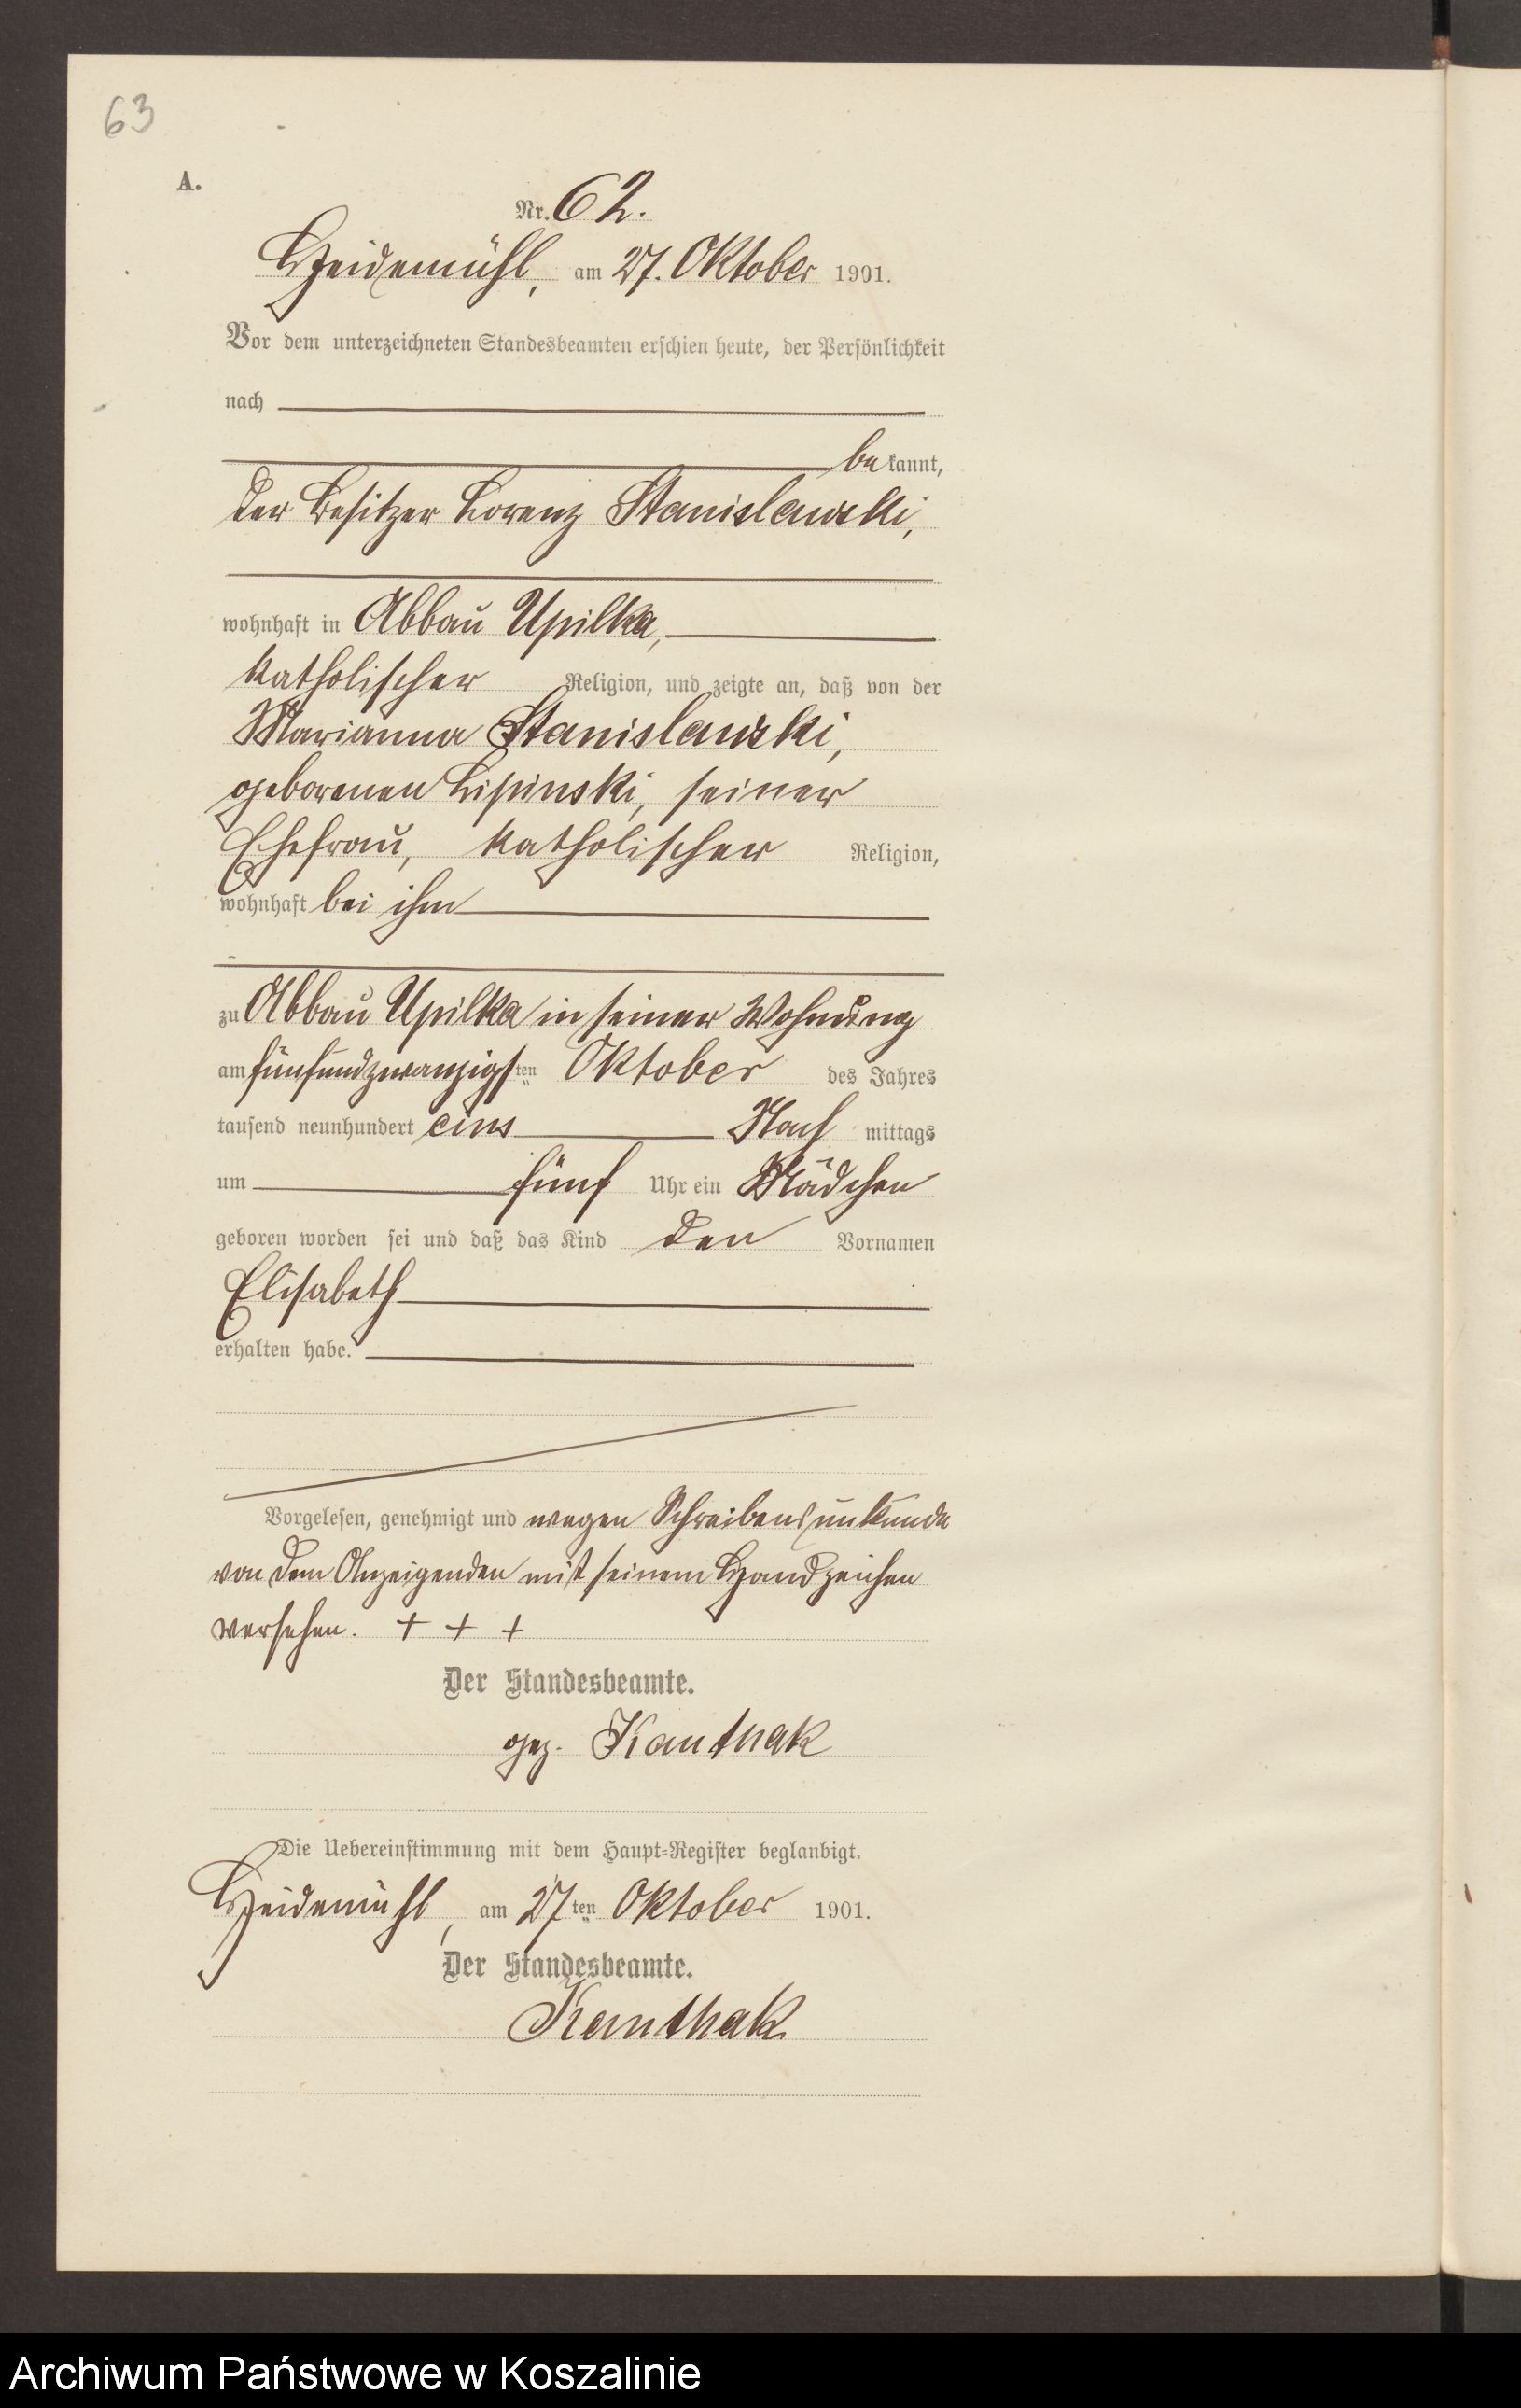 63
A.
Nr. 62.
Heidemühl, am 27. Oktober 1901.
Vor dem unterzeichneten Standesbeamten erschien heute, der Persönlichkeit
nach
bekannt,
der Besitzer Lorenz Stanislawski,
wohnhaft in Abbau Upilka,
katholischer Religion, und zeigte an, daß von der
Marianna Stanislawski,
geborenen Lipinski, seiner
Ehefrau, katholischer Religion,
wohnhaft bei ihm
zu Abbau Upilka in seiner Wohnung
am fünfundzwanzigsten Oktober des Jahres
tausend neunhundert eins Nach mittags
um fünf Uhr ein Mädchen
geboren worden sei und daß das Kind den Vornamen
Elisabeth
erhalten habe.
Vorgelesen, genehmigt und wegen Schreibensunkunde
von dem Anzeigenden mit seinem Handzeichen
versehen. + + +
Der Standesbeamte.
gez. Kanthak
Die Uebereinstimmung mit dem Haupt-Register beglaubigt.
Heidemühl, am 27ten Oktober 1901.
Der Standesbeamte.
Kanthak
Archiwum Państwowe w Koszalinie